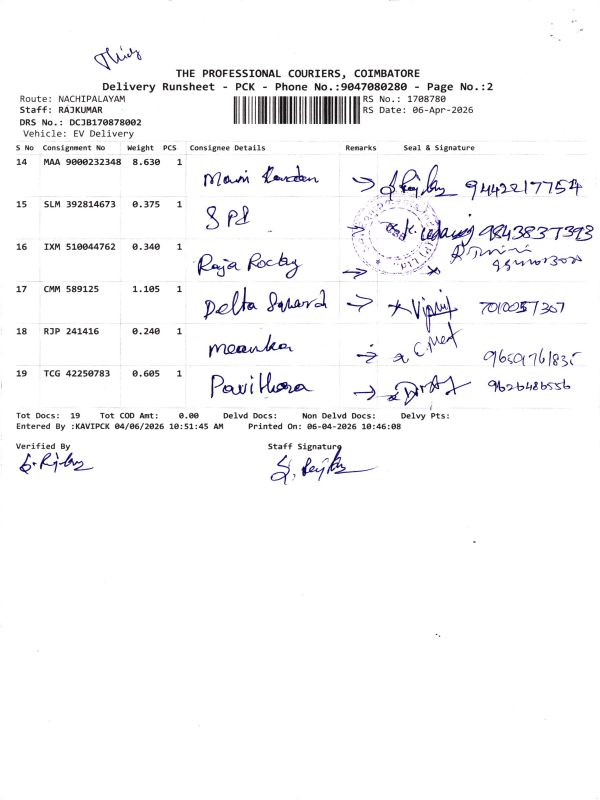 THE PROFESSIONAL COURIERS, COIMBATORE
Delivery Runsheet - PCK - Phone No.:9047080280 - Page No.:2
Route: NACHIPALAYAM
Staff: RAJKUMAR
DRS No.: DCJB170878002
Vehicle: EV Delivery
RS No.: 1708780
RS Date: 06-Apr-2026
S No Consignment No Weight PCS Consignee Details Remarks Seal & Signature
14 MAA 9000232348 8.630 1 9442217754
15 SLM 392814673 0.375 1 SPI 9843837393
16 IXM 510044762 0.340 1 Raja Rocky
17 CMM 589125 1.105 1 Delta Squard 7010057307
18 RJP 241416 0.240 1 meanka
19 TCG 42250783 0.605 1 Pavithora 9626486556
Tot Docs: 19 Tot COD Amt: 0.00 Delvd Docs: Non Delvd Docs: Delvy Pts:
Entered By :KAVIPCK 04/06/2026 10:51:45 AM Printed On: 06-04-2026 10:46:08
Verified By Staff Signature